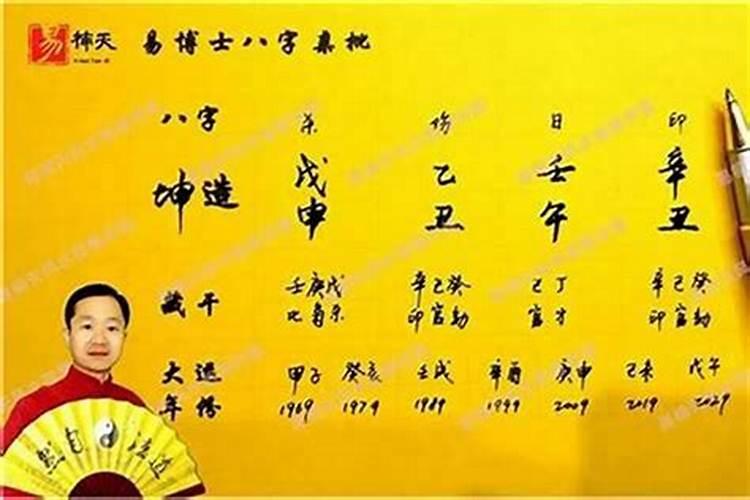 易 神天 易博士八字真批
八字 杀 伤 日 印
坤造 戊 乙 壬 辛
申 丑 午 丑
藏干 壬庚戊 辛己癸 己丁 辛己癸
比枭杀 印官劫 官才 印官劫
大运 甲子 癸亥 壬戌 辛酉 庚申 己未 戊午
年份 1969 1979 1989 1999 2009 2019 2029
然自法道